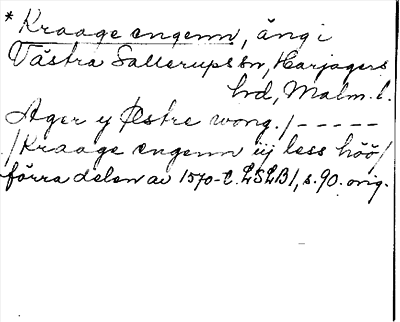 * Kraage engenn, äng i
Västra Sallerups sn, Harjagers
hd, Malm. l.
Ager y Østre wong. / - - - - -
/ Kraage engenn iij less höö /
förra delen av 1570-t. LSLB 1, s. 90. orig.